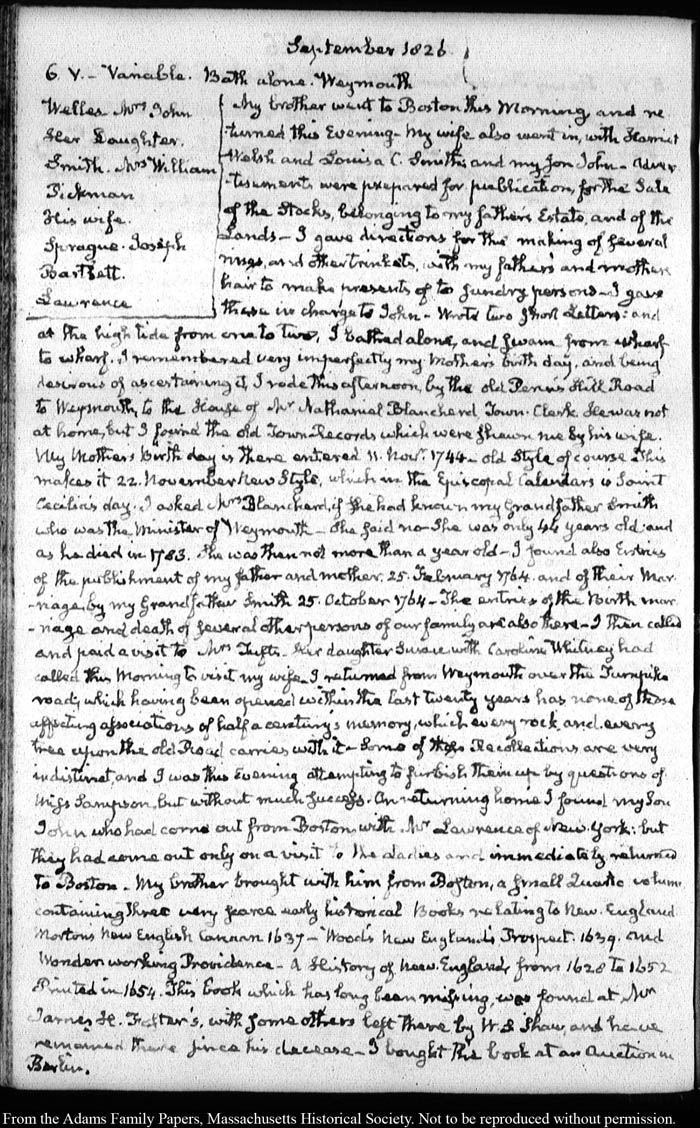 September 1826
6. V. - Variable. Bath alone. Weymouth
Welles Mrs John
Her Daughter.
Smith. Mrs William
Pickman
His wife.
Sprague. Joseph
Bartlett.
Lawrence
My brother went to Boston this Morning, and re
turned this Evening - My wife also went in, with Harriet
Welsh and Louisa C. Smith; and my Son John - Adver
tisements were prepared for publication, for the Sale
of the Stocks, belonging to my father's Estate, and of the
Lands - I gave directions for the making of several
rings, and other trinkets, with my father's and mother's
hair to make presents of to sundry persons - I gave
these in charge to John - Wrote two short Letters: and
at the high tide from one to two, I bathed alone, and swam from wharf
to wharf. I remembered very imperfectly my Mother's birth day, and being
desirous of ascertaining it, I rode this afternoon, by the old Penn's Hill Road
to Weymouth, to the House of Mr Nathaniel Blancherd Town-Clerk. He was not
at home, but I found the old Town Records which were shewn me by his wife.
My Mother's Birth day is there entered 11. Novr. 1744 - old Style of course. This
makes it 22. November New Style, which in the Episcopal Calendars is Saint
Cecilia's day. I asked Mrs Blanchard, if she had known my Grandfather Smith
who was the Minister of Weymouth - She said no - She was only 44 years old and
as he died in 1783. She was then not more than a year old - I found also Entries
of the publishment of my father and mother, 25. February 1764. and of their Mar-
-riage by my Grandfather Smith 25. October 1764 - The entries of the Birth mar-
-riage and death of several other persons of our family are also there - I then called
and paid a visit to Mrs Tufts. Her daughter Susan with Caroline Whitney had
called this Morning to visit my wife. I returned from Weymouth over the Turnpike
road; which having been opened within the last twenty years has none of those
affecting associations of half a century's memory, which every rock, and every
tree upon the old Road carries with it - Some of these Recollections are very
indistinct, and I was this Evening attempting to furbish them up by questions of
Miss Sampson, but without much success. On returning home I found my Son
John who had come out from Boston, with Mr Lawrence of New York: but
they had come out only on a visit to the Ladies and immediately returned
to Boston - My brother brought with him from Boston, a small Quarto volume
containing three very scarce early historical Books relating to New-England
Morton's New English Canaan 1637 - Wood's New England's Prospect. 1639. and
Wonder working Providence - A History of New England, from 1628 to 1652
Printed in 1654. This book which has long been missing, was found at Mr
James H. Foster's, with some others left there by W. S. Shaw, and have
remained there since his decease - I bought this book at an Auction in
Berlin.
From the Adams Family Papers, Massachusetts Historical Society. Not to be reproduced without permission.